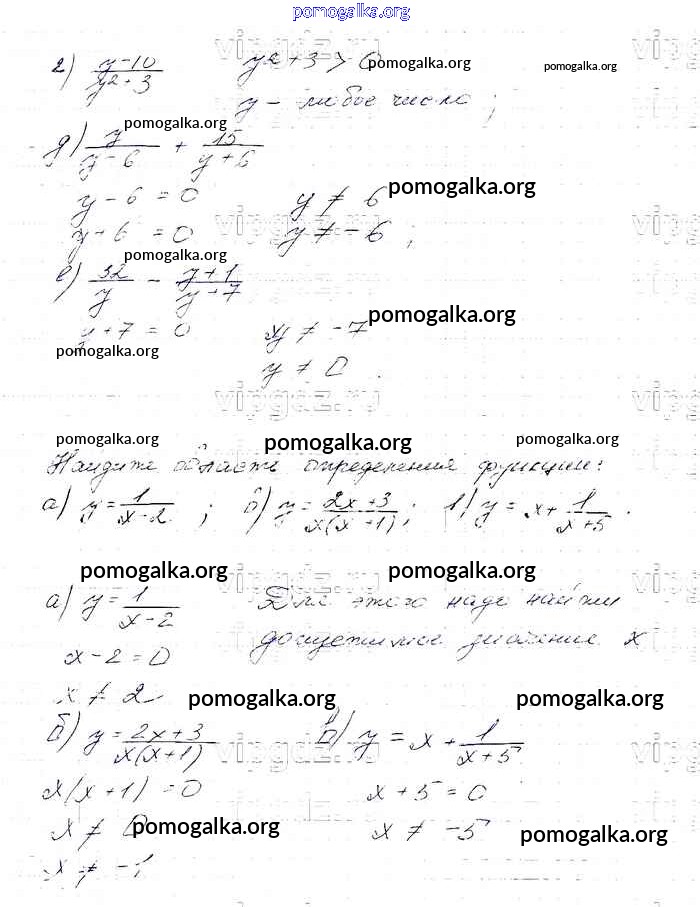 pomogalka.org
г) (y-10)/(y²+3)   y²+3 > 0
pomogalka.org pomogalka.org
y - любое число ;
pomogalka.org
д) y/(y-6) + 15/(y+6)
y-6 = 0   y ≠ 6 pomogalka.org
y+6 = 0   y ≠ -6 ;
pomogalka.org
е) 32/y - (y+1)/(y+7)
y+7 = 0   y ≠ -7 pomogalka.org
pomogalka.org
y ≠ 0 .
vipgdz.ru
pomogalka.org pomogalka.org pomogalka.org
Найдите область определения функции:
а) y = 1/(x-2) ; б) y = (2x+3)/(x(x+1)) ; в) y = x + 1/(x+5) .
pomogalka.org pomogalka.org
а) y = 1/(x-2)   Для этого надо найти
x-2 = 0   допустимое значение x
x ≠ 2 pomogalka.org pomogalka.org
б) y = (2x+3)/(x(x+1))   в) y = x + 1/(x+5)
x(x+1) = 0   x+5 = 0
x ≠ 0 pomogalka.org   x ≠ -5 pomogalka.org
x ≠ -1